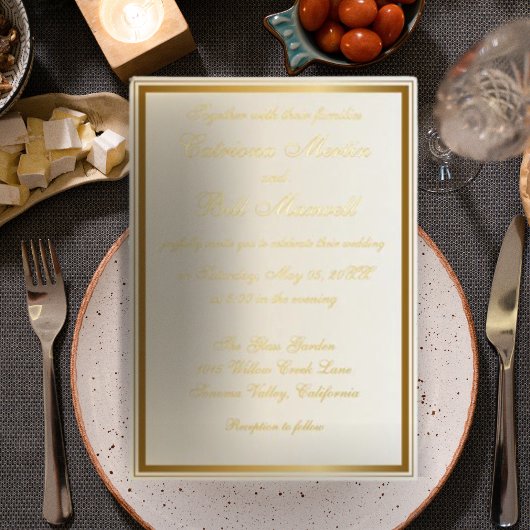 Together with their families
Catriona Merlin
and
Bill Maxwell
joyfully invite you to celebrate their wedding
on Saturday, May 05, 20XX
at 5:00 in the evening
The Glass Garden
1015 Willow Creek Lane
Sonoma Valley, California
Reception to follow